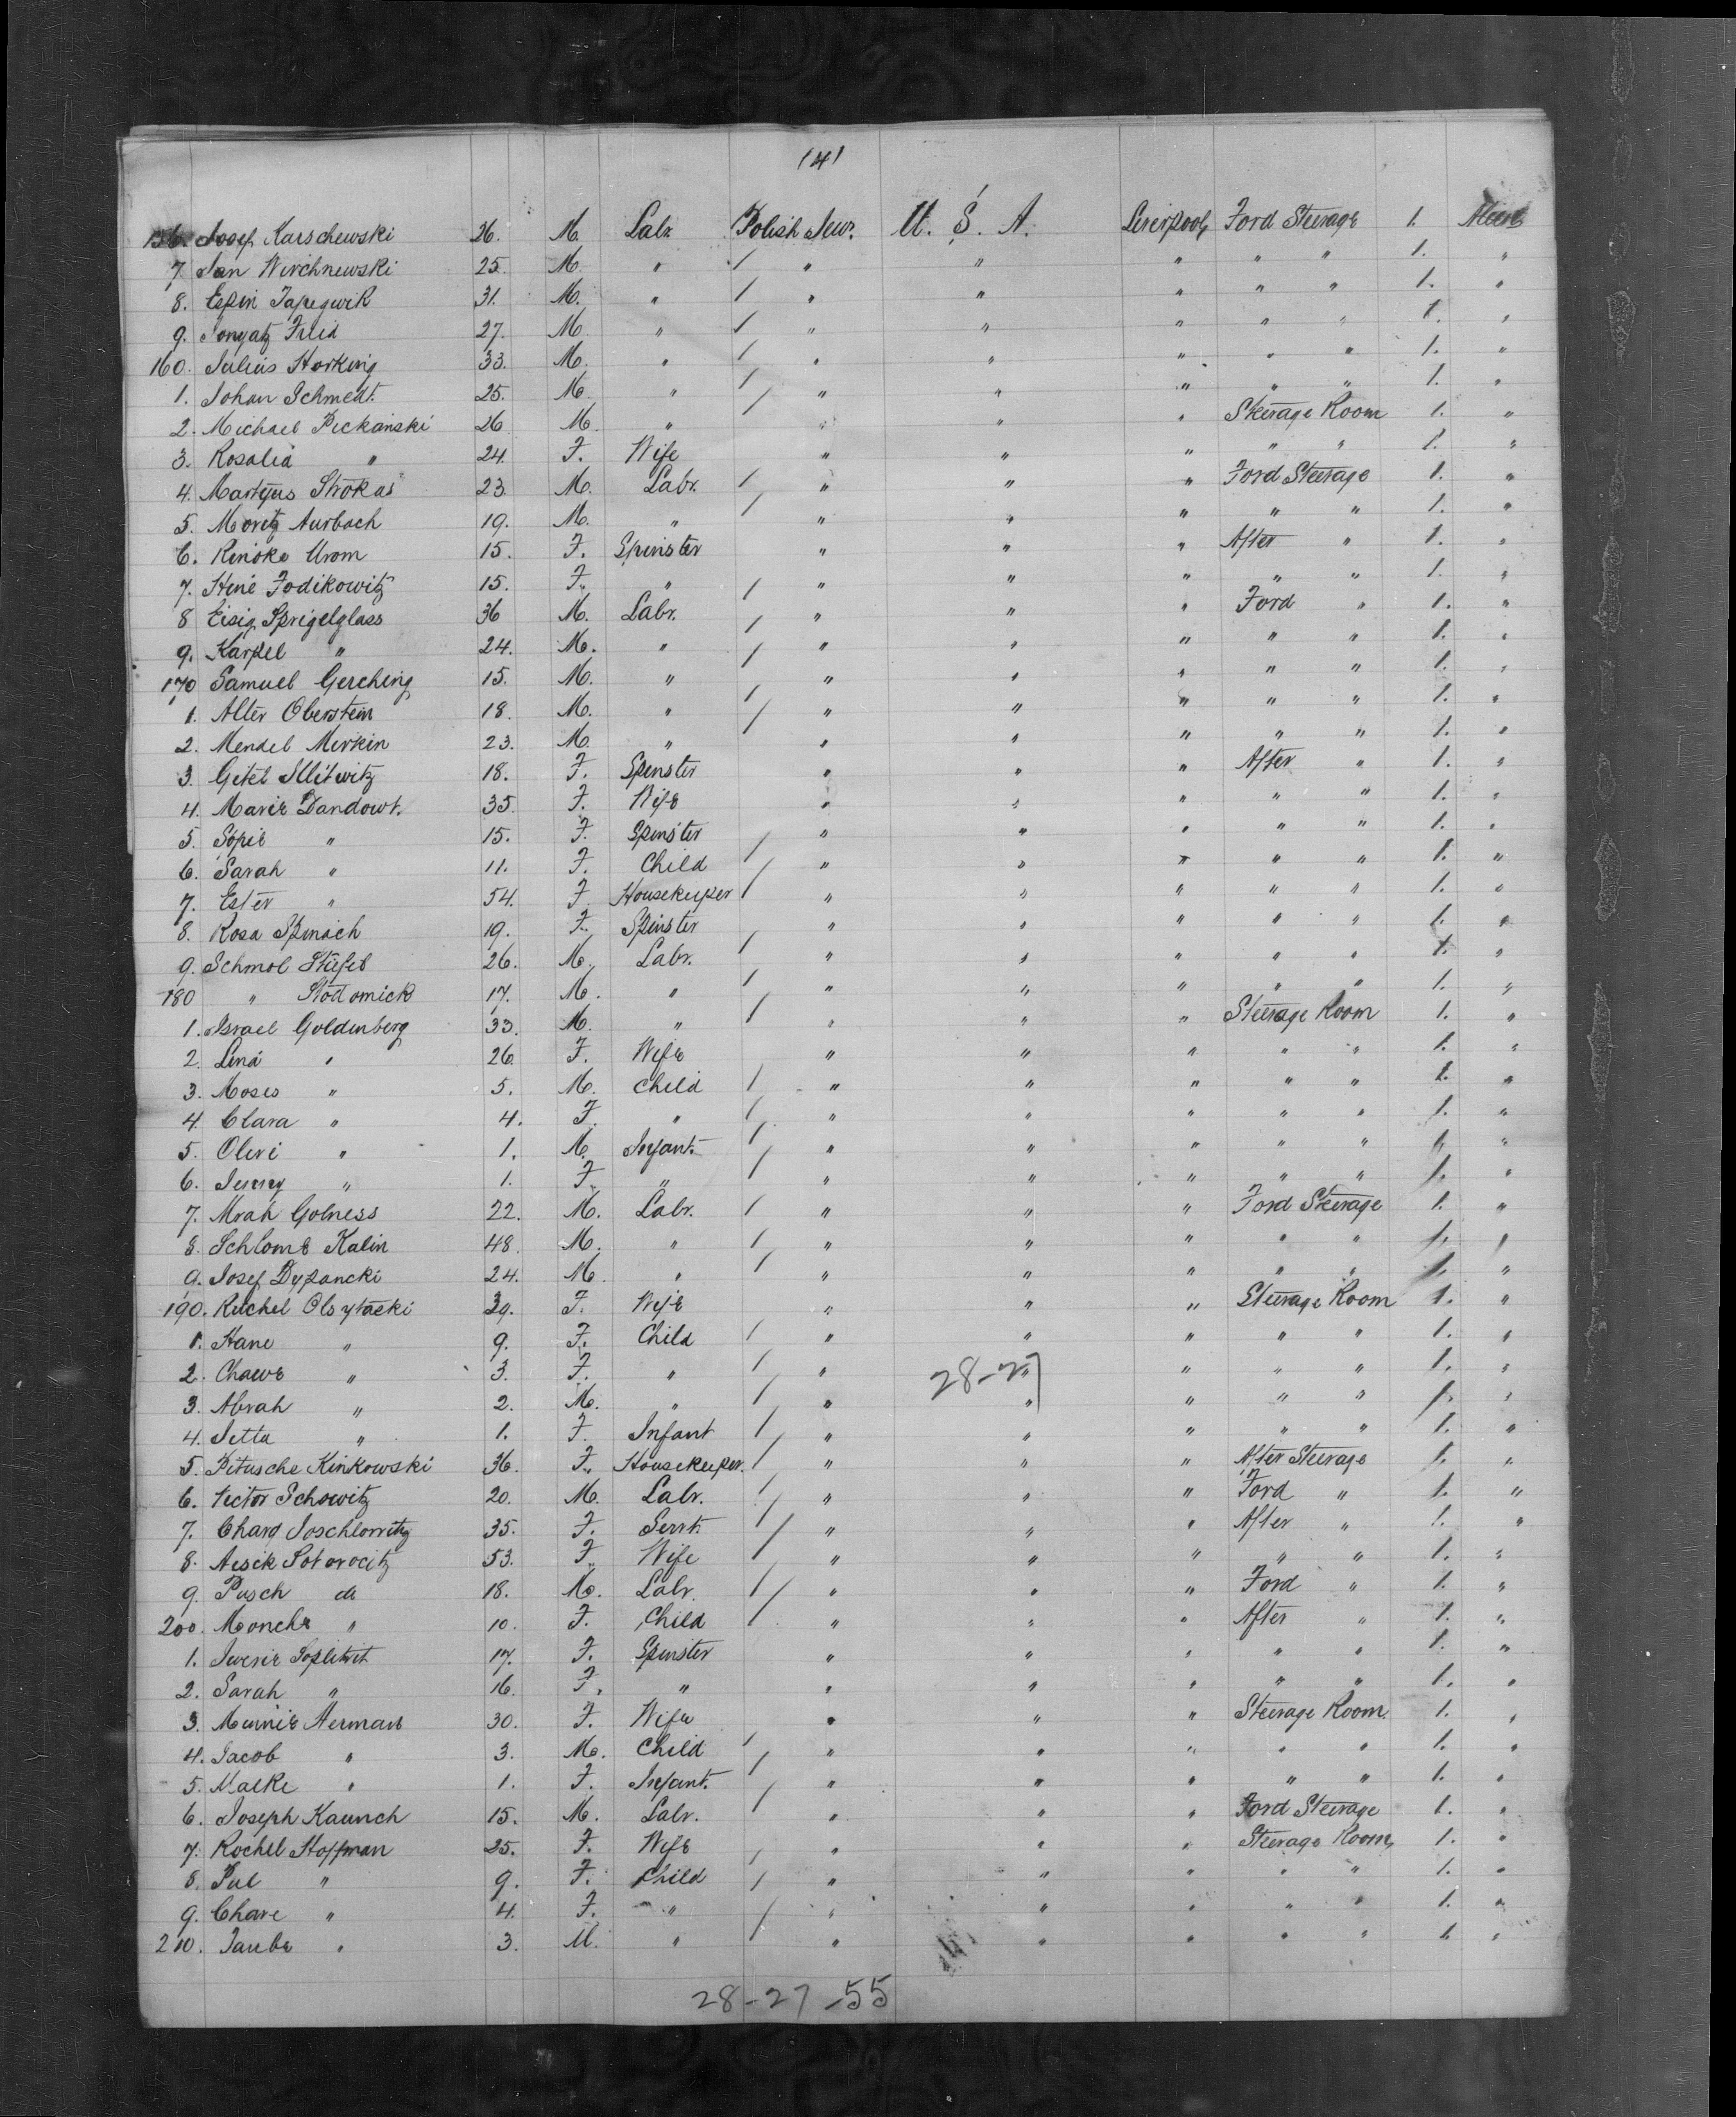 141
156. Josef Karschewski 26. M. Labr. Polish Jew. U. S. A. Liverpool, Ford Steerage 1.
7. Jan Wirchnewski 25. M. " / " " " " " 1. "
8. Espin Tapegwik 31. M. " / " " " " " 1. "
9. Frud 27. M. " / " " " " " 1. "
160. Julius Horking 33. M. " / " " " " " 1. "
1. Johan Schmedt. 25. M. " / " " " " " 1. "
2. Michael Peckanski 26 M. " / " " " Steerage Room 1. "
3. Rosalia " 24. F. Wife " " " " " 1. "
4. Martyus Strokas 23. M. Labr. / " " " Ford Steerage 1. "
5. Moritz Aurbach 19. M. " / " " " " " 1. "
6. Rinoke Urom 15. F. Spinster " " " After " 1. "
7. Hine Fodikowitz 15. F. " / " " " " " 1. "
8 Eisig Sprigelglass 36 M. Labr. / " " " Ford " 1. "
9. Karpel " 24. M. " / " " " " " 1. "
170 Samuel Gerching 15. M. " " " " " " 1. "
1. Alter Oberstein 18. M. " / " " " " " 1. "
2. Mendel Merkin 23. M. " " " " " " 1. "
3. Gitel 18. F. Spinster " " " After " 1. "
4. Marie Dandowt. 35. F. Wife " " " " " 1. "
5. Sopie " 15. F. Spinster / " " " " " 1. "
6. Sarah " 11. F. Child / " " " " " 1. "
7. Ester " 54. F. Housekeeper / " " " " " 1. "
8. Rosa Spinach 19. F. Spinster " " " " " 1. "
9. Schmol Stiefel 26. M. Labr. / " " " " " 1. "
180 " Stodomick 17. M. " / " " " " " 1. "
1. Israel Goldenberg 33. M. " / " " " Steerage Room 1. "
2. Lina " 26. F. Wife " " " " " 1. "
3. Moses " 5. M. Child / " " " " " 1. "
4. Clara " 4. F. " / " " " " " 1. "
5. Oleri " 1. M. Infant. / " " " " " 1. "
6. Jenny " 1. F. " / " " " " " 1. "
7. Mrah Golness 22. M. Labr. / " " " Ford Steerage 1. "
8. Schlome Kalin 48. M. " / " " " " " 1. "
9. Josef Dypancki 24. M. " / " " " " " 1. "
190. Ruchel Olsytacki 39. F. Wife " " " Steerage Room 1. "
1. Hane " 9. F. Child / " " " " " 1. "
2. Chawe " 3. F. " / " 28-27 " " " " 1. "
3. Abrah " 2. M. " / " " " " " 1. "
4. Jetta " 1. F. Infant / " " " " " 1. "
5. Pitusche Kinkowski 36. F. Housekeeper. / " " " After Steerage 1. "
6. Victor Schowitz 20. M. Labr. / " " " Ford " 1. "
7. Charg Joschlowitz 35. F. Servt. / " " " After " 1. "
8. Aesik Sotorocitz 53. F. Wife / " " " " " 1. "
9. Pusch do 18. M. Labr. / " " " Ford " 1. "
200. Monche " 10. F. Child / " " " After " 1. "
1. Soplitvit 17. F. Spinster " " " " " 1. "
2. Sarah " 16. F. " " " " " " 1. "
3. Minnie Herman 30. F. Wife " " " Steerage Room. 1. "
4. Jacob " 3. M. Child / " " " " " 1. "
5. Malke " 1. F. Infant. / " " " " " 1. "
6. Joseph Kaunch 15. M. Labr. / " " " Ford Steerage 1. "
7. Rochel Hoffman 25. F. Wife " " " Steerage Room, 1. "
8. Pul " 9. F. Child / " " " " " 1. "
9. Chare " 4. F. " / " " " " " 1. "
210. Taube " 3. M. " / " " " " " 1. "
28-27-55